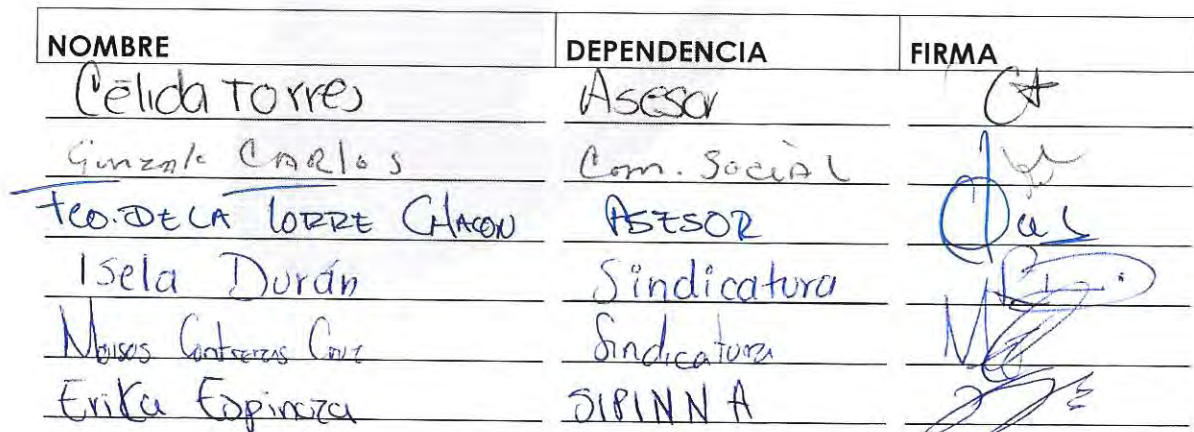 NOMBRE DEPENDENCIA FIRMA
Célida Torres Asesor
Carlos Com. Social
Fco. DE LA TORRE CHACON ASESOR
Isela Durán Sindicatura
Moises Contreras Cruz Sindicatura
Erika Espinoza SIPINNA